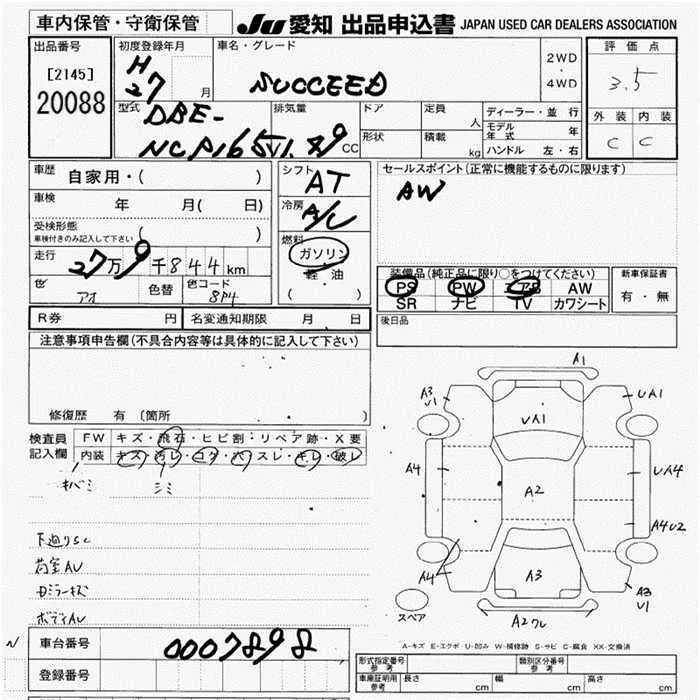 車内保管・守衛保管
JU 愛知 出品申込書 JAPAN USED CAR DEALERS ASSOCIATION
出品番号
[2145]
20088
初度登録年月
H
27
月
車名・グレード
SUCCEED
2WD
・
4WD
評価点
3.5
外装 内装
C C
型式
DBE-
NCP165V
排気量
1.49
CC
ドア
形状
定員
人
積載
kg
ディーラー・並行
モデル年式 年
ハンドル 左・右
車歴 自家用・( )
車検 年 月( 日)
受検形態 ( )
車検付きのみ記入して下さい
走行 27万9千844km
色 アオ 色替 色コード 8P4
シフト
AT
冷房
A/C
燃料
ガソリン
軽油
( )
セールスポイント(正常に機能するものに限ります)
AW
装備品(純正品に限り○をつけてください)
PS PW エアB AW
SR ナビ TV カワシート
新車保証書
有・無
R券 円 名変通知期限 月 日
後日品
注意事項申告欄(不具合内容等は具体的に記入して下さい)
修復歴 有 〔箇所 〕
検査員記入欄
FW キズ・飛石・ヒビ割・リペア跡・X要
内装 キズ・汚レ・コゲ・穴・スレ・キレ・破レ
キバミ シミ
下廻りSC
荷室AU
Dミラーキズ
ボディAU
A1
A3
V1
UA1
UA1
A4
A2
UA4
A4U2
A4
A3
A3
V1
スペア
A2ワレ
A-キズ E-エクボ U-凹み W-補修跡 S-サビ C-腐食 XX-交換済
N
車台番号 0007898
登録番号
形式指定番号 参考 類別区分番号 参考
車庫証明用 参考 長さ cm 幅 cm 高さ cm